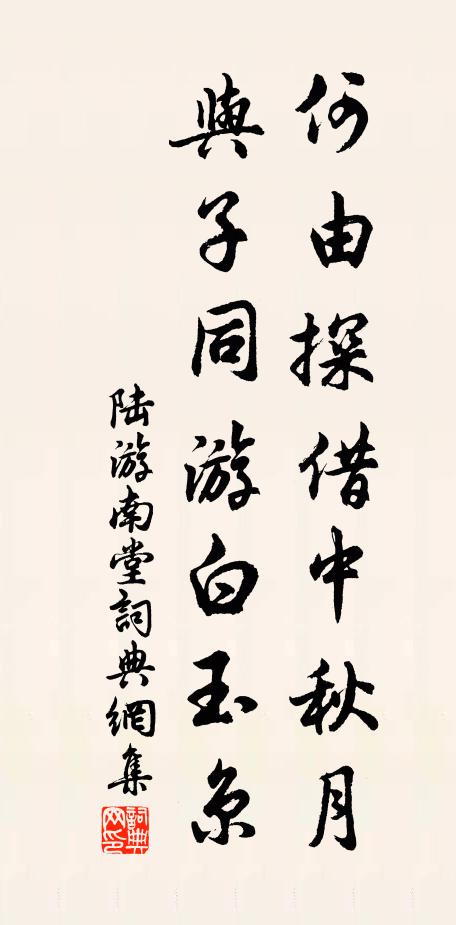 何由探借中秋月
與子同游白玉京
陆游南堂詞典網集
詞典網印